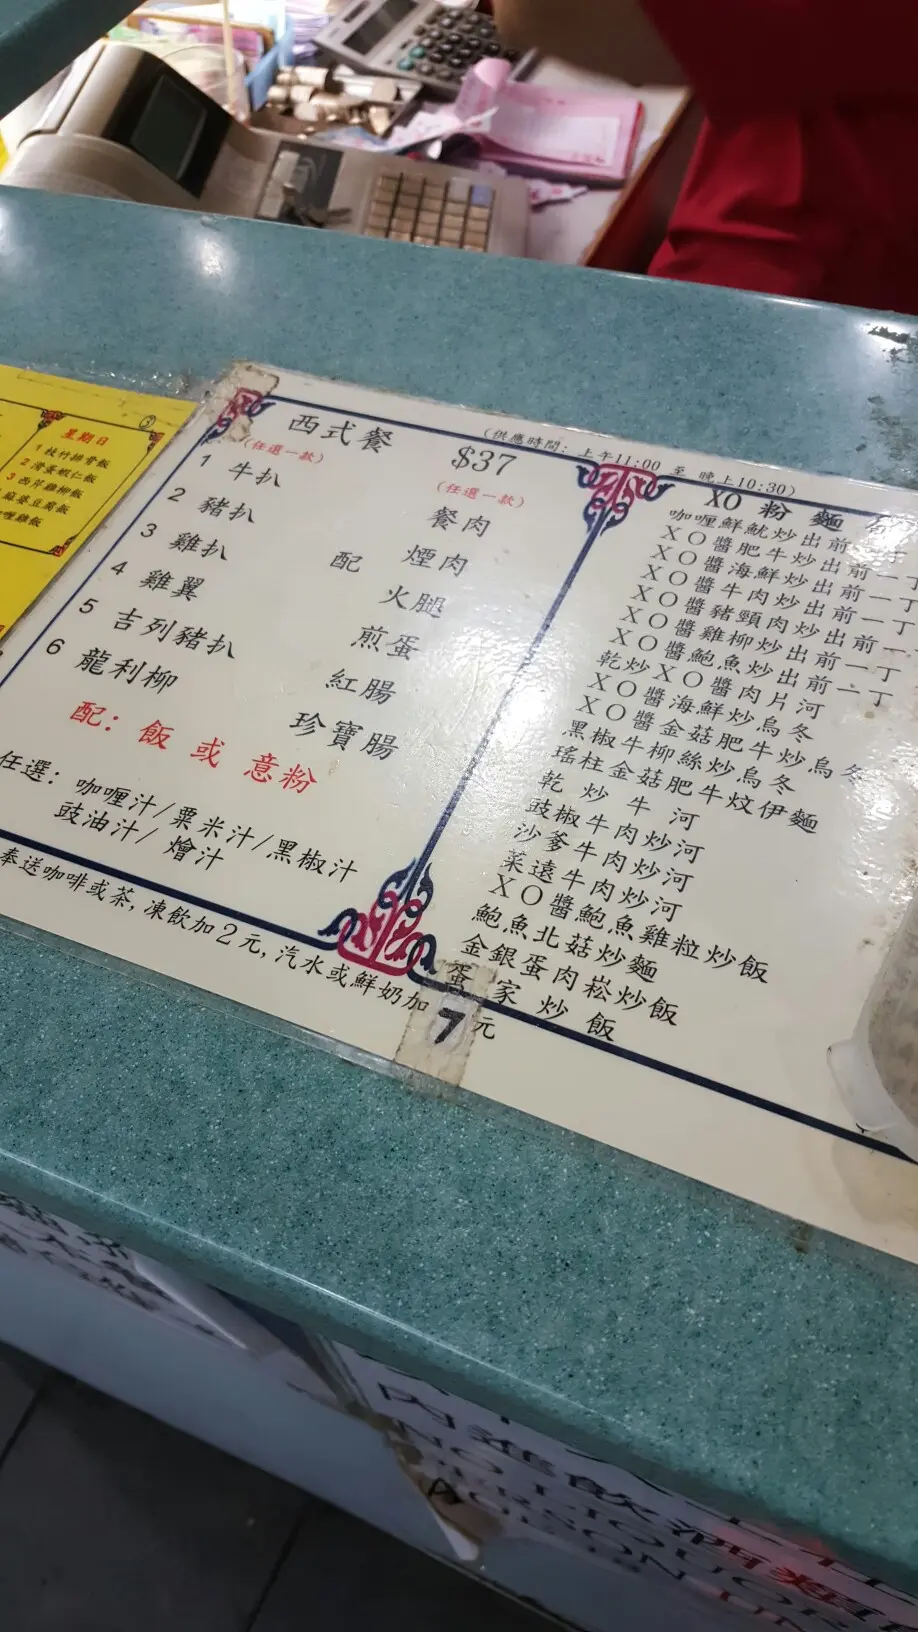 星期日
1 枝竹排骨飯
2 滑蛋蝦仁飯
3 西芹雞柳飯
麻婆豆腐飯
喱雞飯
西式餐
$37
(供應時間: 上午11:00 至 晚上10:30)
(任選一款)
1 牛扒
2 豬扒
3 雞扒
4 雞翼
5 吉列豬扒
6 龍利柳
配
(任選一款)
餐肉
煙肉
火腿
煎蛋
紅腸
珍寶腸
配: 飯 或 意粉
任選: 咖喱汁/粟米汁/黑椒汁
豉油汁/燴汁
奉送咖啡或茶,凍飲加2元,汽水或鮮奶加7元
XO 粉 麵
咖喱鮮魷炒出前一丁
XO醬肥牛炒出前一丁
XO醬海鮮炒出前一丁
XO醬牛肉炒出前一丁
XO醬豬頸肉炒出前一丁
XO醬雞柳炒出前一丁
XO醬鮑魚炒出前一丁
乾炒XO醬肉片河
XO醬海鮮炒烏冬
XO醬金菇肥牛炒烏冬
黑椒牛柳絲炒烏冬
瑤柱金菇肥牛炆伊麵
乾炒牛河
豉椒牛肉炒河
沙爹牛肉炒河
菜遠牛肉炒河
XO醬鮑魚雞粒炒飯
鮑魚北菇炒麵
金銀蛋肉崧炒飯
蛋家炒飯